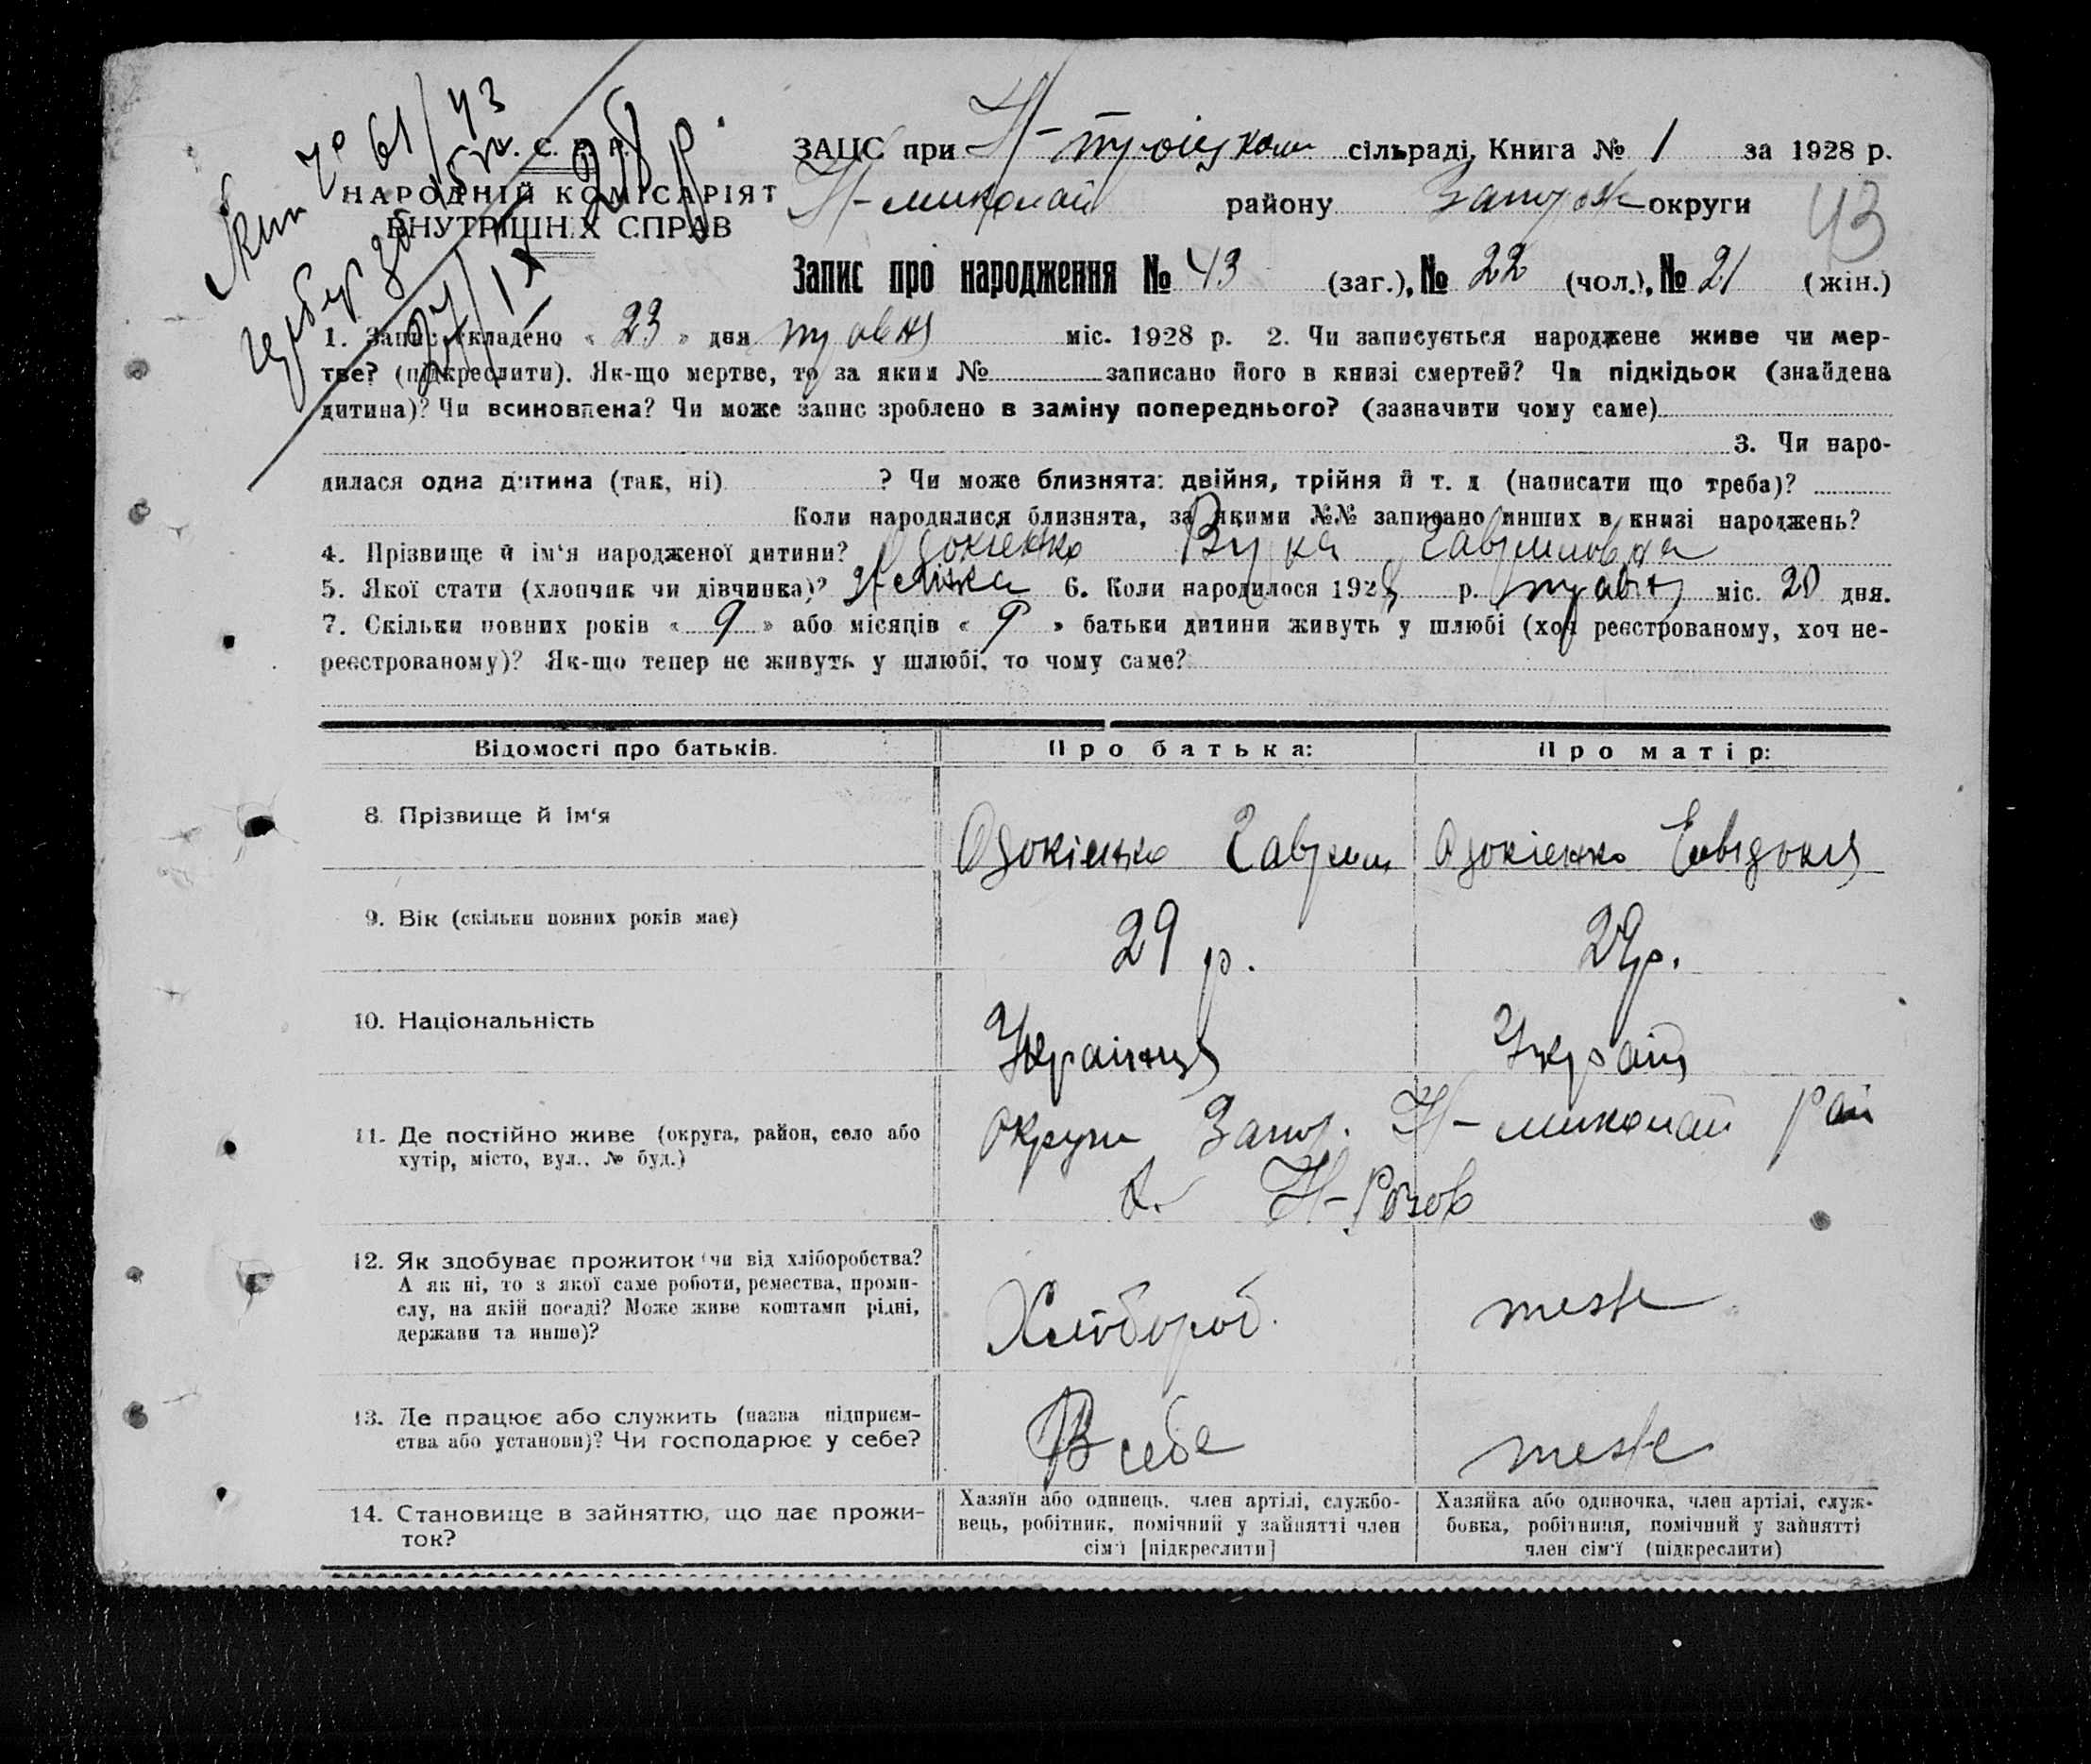 У. С. Р. Р.
НАРОДНІЙ КОМІСАРІЯТ
ВНУТРІШНІХ СПРАВ
61/43
28 р.
ЗАЦС при Н-троіцком сільраді, Книга № 1 за 1928 р.
Н-миколай району Запор округи
43
Запис про народження № 43 (заг.), № 22 (чол.), № 21 (жін.)
1. Запис складено « 23 » дня травня міс. 1928 р. 2. Чи записується народжене живе чи мер-
тве? (підкреслити). Як-що мертве, то за яким № записано його в книзі смертей? Чи підкідьок (знайдена
дитина)? Чи всиновлена? Чи може запис зроблено в заміну попереднього? (зазначити чому саме)
3. Чи наро-
дилася одна дитина (так, ні) ? Чи може близнята: двійня, трійня й т. д (написати що треба)?
Коли народилися близнята, за якими №№ записано инших в книзі народжень?
4. Прізвище й ім‘я народженої дитини? Одокіенко Гавриловна
5. Якої стати (хлопчик чи дівчинка)? 6. Коли народилося 1928 р. травня міс. 20 дня.
7. Скільки повних років « 9 » або місяців « 9 » батьки дитини живуть у шлюбі (хоч реєстрованому, хоч не-
реєстрованому)? Як-що тепер не живуть у шлюбі, то чому саме?
Відомості про батьків. Про батька: Про матір:
8. Прізвище й ім‘я Одокіенко Гаврил Одокіенко Евідокія
9. Вік (скільки повних років має) 29 р. 29 р.
10. Національність Українця Україн
11. Де постійно живе (округа, район, село або
хутір, місто, вул., № буд.)
округи Запор. Н-миколай рай
Н-Розов
12. Як здобуває прожиток (чи від хліборобства?
А як ні, то з якої саме роботи, ремества, проми-
слу, на якій посаді? Може живе коштами рідні,
держави та инше)?
Хлібороб. теж
13. Де працює або служить (назва підприєм-
ства або установи)? Чи господарює у себе?
В себе теж
14. Становище в зайняттю, що дає прожи-
ток?
Хазяїн або одинець, член артілі, службо-
вець, робітник, помічний у зайнятті член
сім‘ї [підкреслити]
Хазяйка або одиночка, член артілі, служ-
бовка, робітниця, помічний у зайнятті
член сім‘ї (підкреслити)